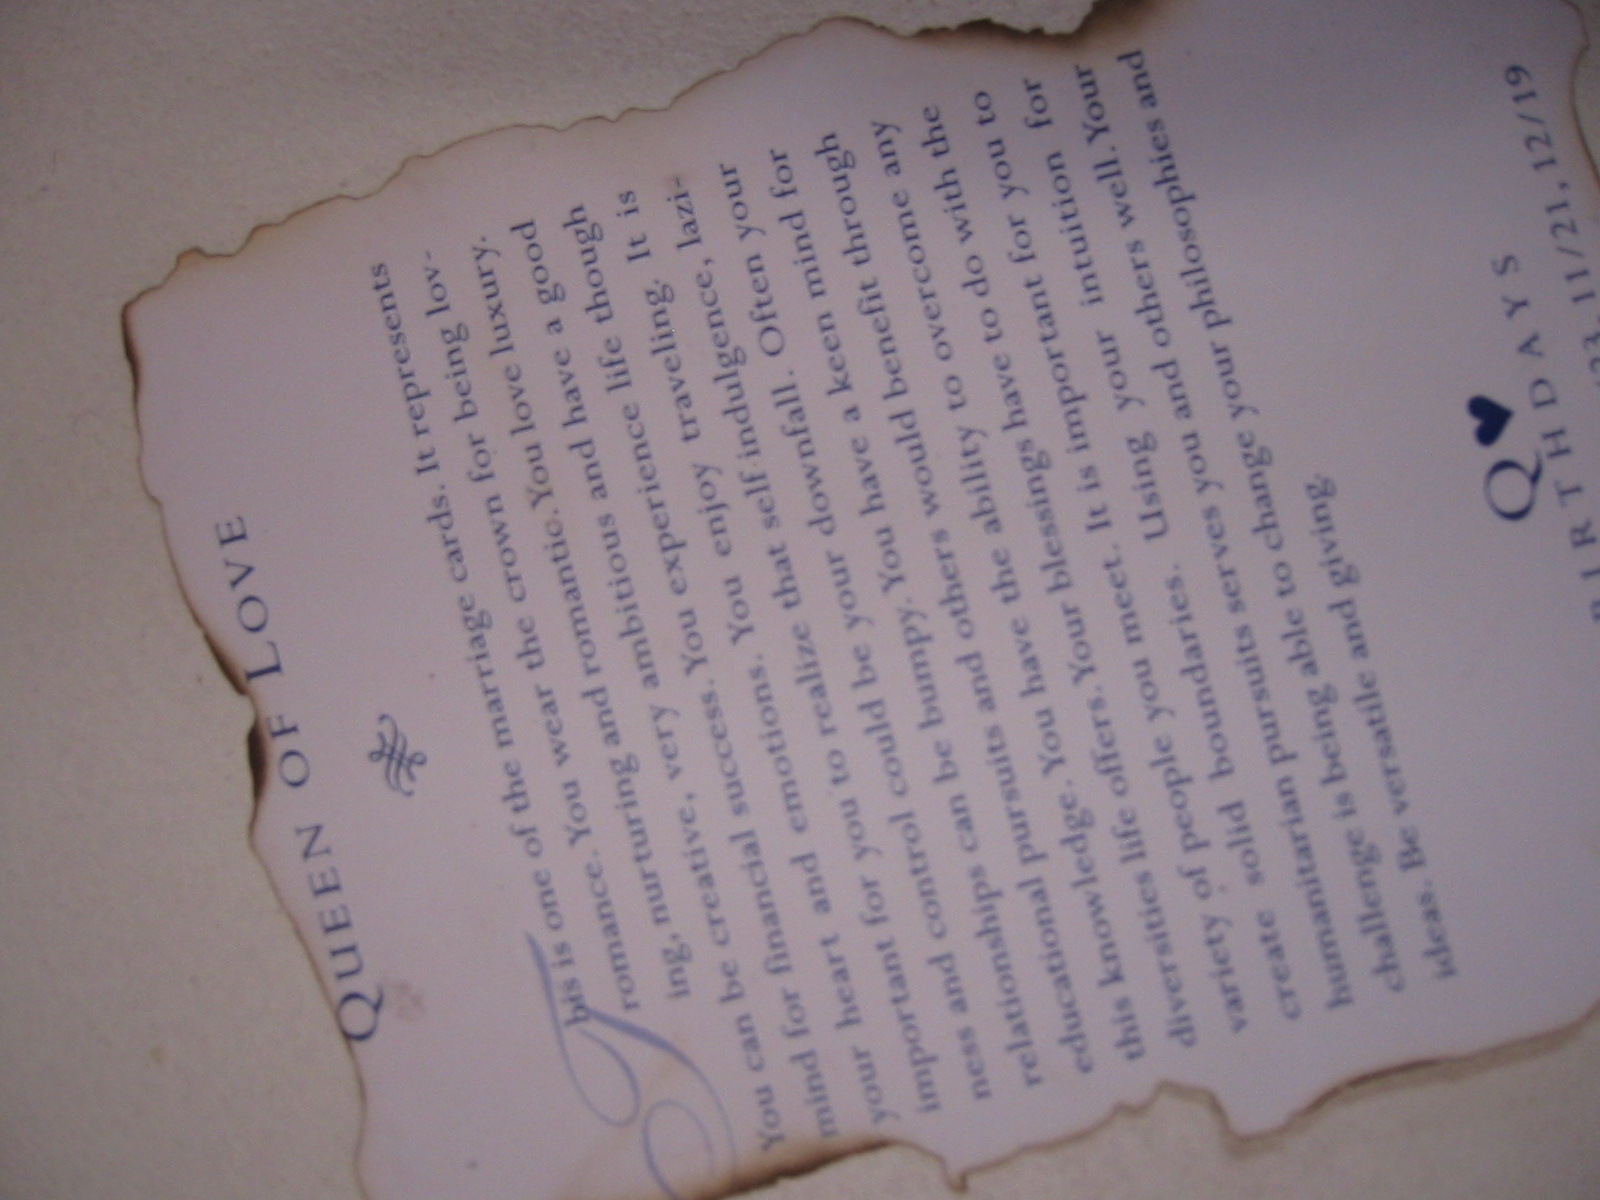 QUEEN OF LOVE
This is one of the marriage cards. It represents
romance. You wear the crown for being lov-
ing, nurturing and romantic. You love luxury.
You can be creative, very ambitious and have a good
mind for financial success. You experience life though
your heart and emotions. You enjoy traveling. It is
important for you to realize that self-indulgence, lazi-
ness and control could be your downfall. Often your
relationships can be bumpy. You have a keen mind for
educational pursuits and others would benefit through
this knowledge. You have the ability to overcome any
diversities life offers. Your blessings have to do with the
variety of people you meet. It is important for you to
create solid boundaries. Using your intuition for
humanitarian pursuits serves you and others well. Your
challenge is being able to change your philosophies and
ideas. Be versatile and giving.
Q♥
BIRTHDAYS
11/21, 12/19